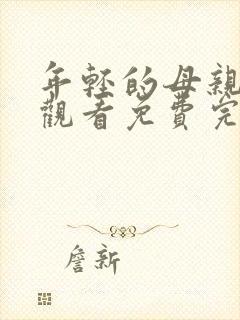 年轻的母親
觀看免費完
詹新